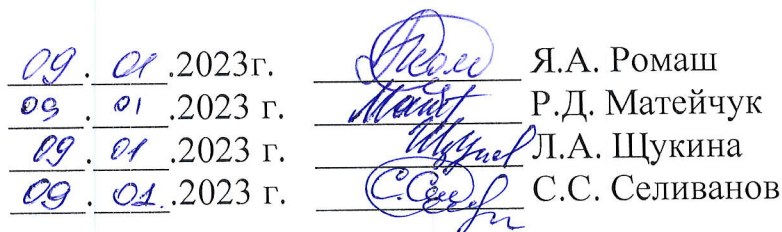 09.01.2023г. Я.А. Ромаш
09.01.2023 г. Р.Д. Матейчук
09.01.2023 г. Л.А. Щукина
09.01.2023 г. С.С. Селиванов